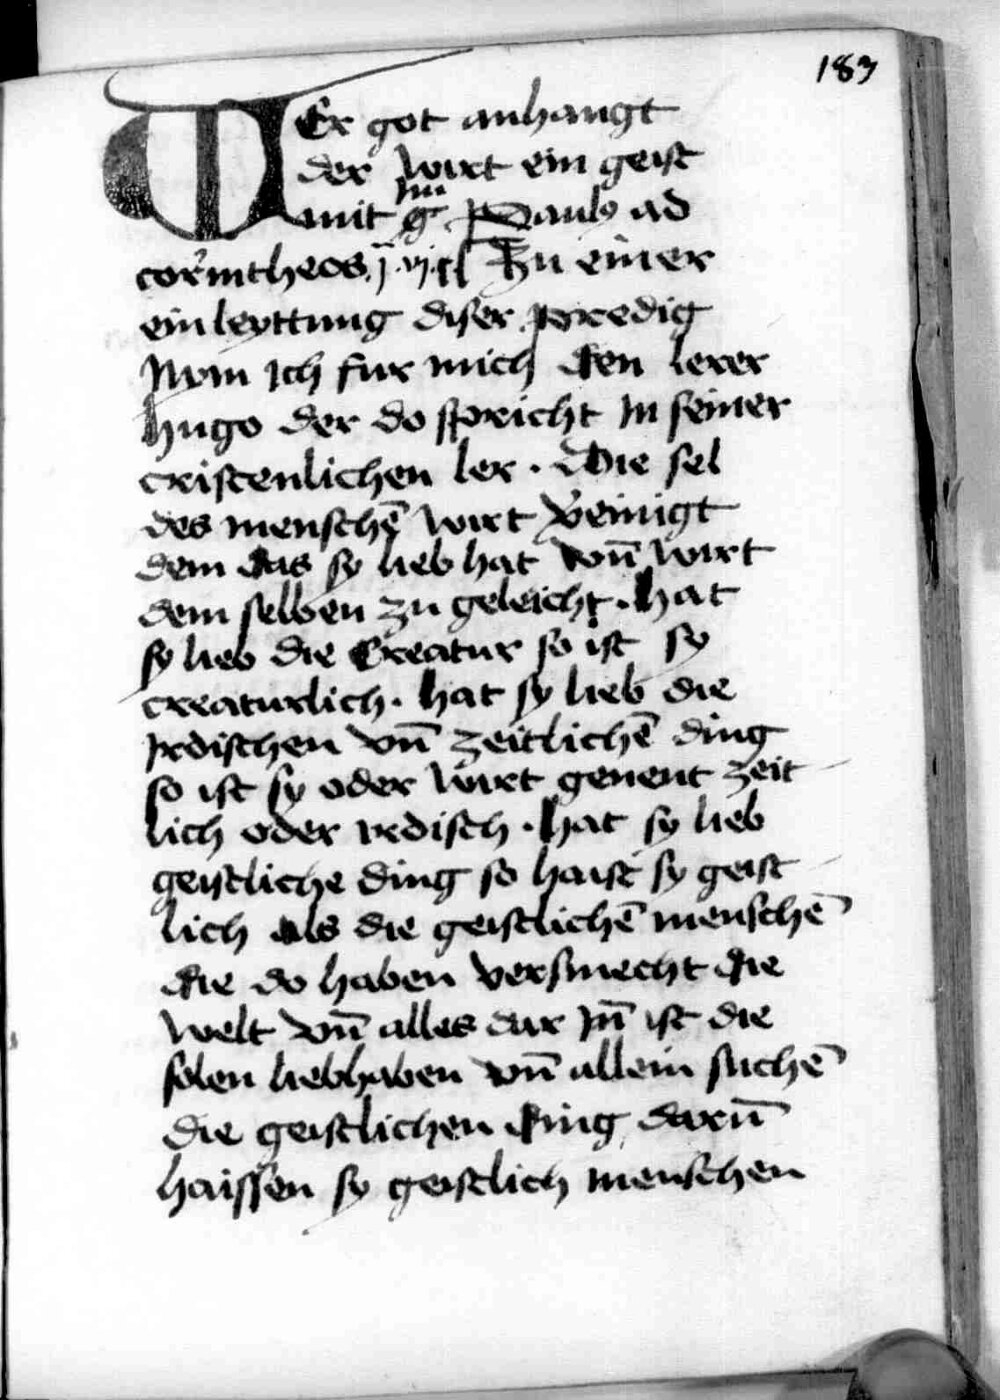 183
WEr got anhangt
der wirt ein geist
mit Im Paulus ad
corintheos j vj Zu einer
einleyttung diser predig
Nym Ich fur mich den lerer
hugo der do spricht In seiner
cristenlichen ler . Die sel
des menschē wirt v̄einigt
dem das sy lieb hat vn̄ wirt
dem selben zu geleicht . hat
sy lieb die Creatur so ist sy
creaturlich . hat sy lieb die
Irdischen vn̄ zeitlichē ding
so ist sy oder wirt genent zeit
lich oder irdisch . hat sy lieb
geistliche ding so haist sy geist
lich als die geistlichē menschē
die do haben versmecht die
welt vn̄ alles dar Jn̄ ist die
solen liebhaben vn̄ allein suchē
die geistlichen ding darū
haissen sy geistlich menschen